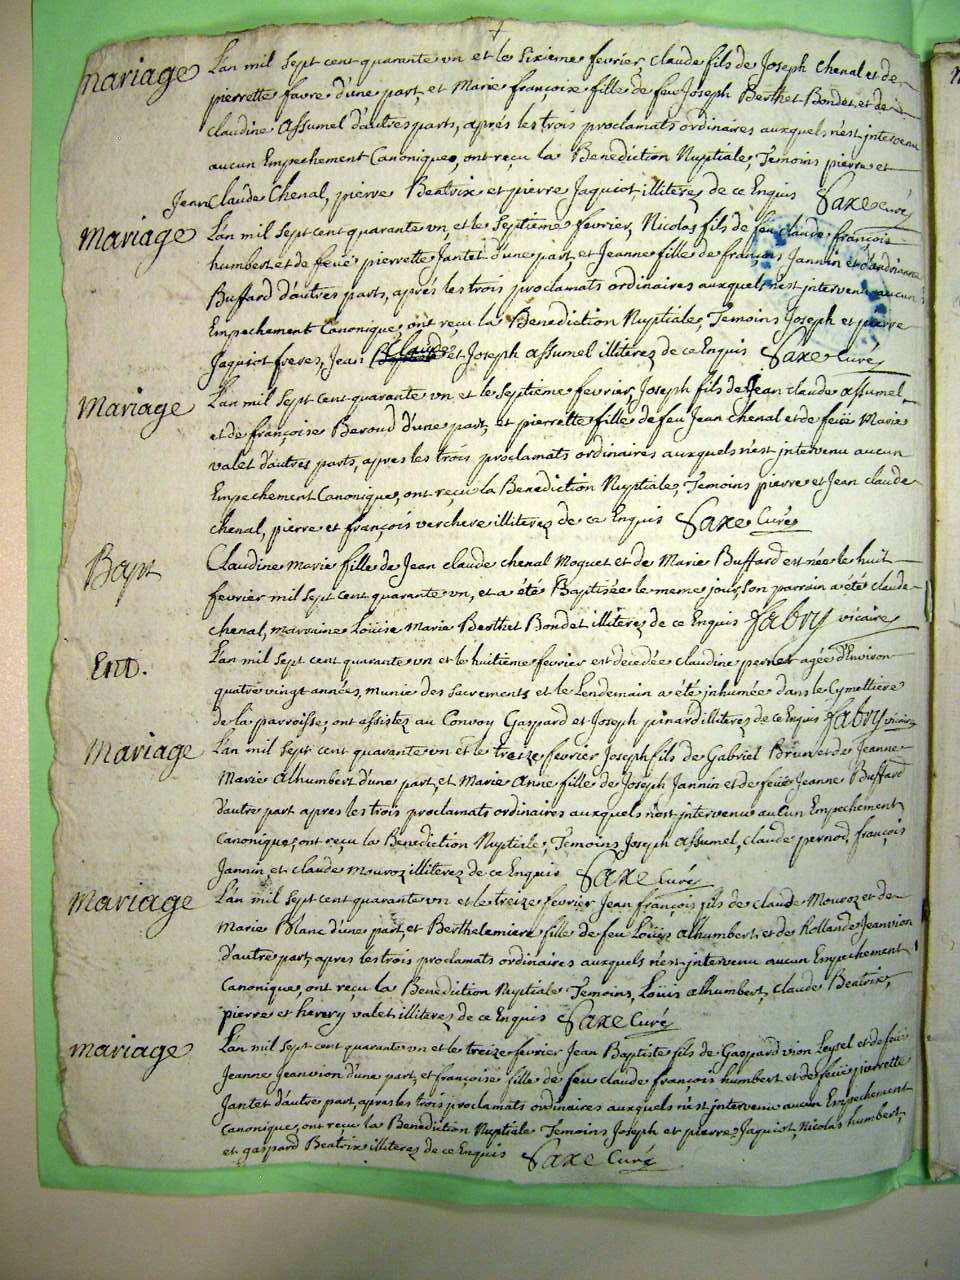 Mariage L'an mil sept cent quarante vn et le sixieme fevrier, claude fils de Joseph chenal et de
pierrette favre d'une part, et Marie françoise fille de feu Joseph Berthet Bondet et de
claudine Assumel d'autres parts, aprés les trois proclamats ordinaires auxquels n'est intervenu
aucun Empechement Canonique, ont reçu la Benediction Nuptiale, Temoins pierre et
Jean Claude Chenal, pierre Beatrix et pierre Jaquiot, illiterez de ce Enquis Saxe Curé
Mariage L'an mil sept cent quarante vn, et le septieme fevrier, Nicolas fils de feu claude françois
humbert et de feüe pierrette Jantet d'une part, et Jeanne fille de françois Jannin et d'andrianne
Buffard d'autres parts, apres les trois proclamats ordinaires auxquels n'est intervenu aucun
Empechement Canonique, ont reçu la Benediction Nuptiale, Temoins Joseph et pierre
Jaquiot freres, Jean Claude et Joseph assumel illiterez de ce Enquis Saxe Curé
Mariage L'an mil sept cent quarante vn et le septieme fevrier, Joseph fils de Jean claude assumel
et de françoise Beroud d'une part, et pierrette fille de feu Jean chenal et de feüe Marie
valet d'autres parts, apres les trois proclamats ordinaires auxquels n'est intervenu aucun
Empechement Canonique, ont reçu la Benediction Nuptiale, Temoins pierre et Jean claude
chenal, pierre et françois verchere illiterez de ce Enquis Saxe Curé
Bapt Claudine Marie fille de Jean claude chenal Moquet et de Marie Buffard est née le huit
fevrier mil sept cent quarante vn, et a été Baptisée le meme jour, son parrain a été claude
chenal, marraine Loüise Marie Berthet Bondet illiterez de ce Enquis Fabry vicaire
Ent. L'an mil sept cent quarante vn et le huitieme fevrier est decedée claudine pernet agée d'Environ
quatre vingt années, munie des sacrements et le Lendemain a été inhumée dans le Cymettiere
de la parroisse, ont assistez au Convoy Gaspard et Joseph pinard illiterez de ce Enquis Fabry vicaire
Mariage L'an mil sept cent quarante vn et le treize fevrier Joseph fils de Gabriel Brun et de Jeanne
Marie Alhumbert d'une part, et Marie Anne fille de Joseph Jannin et de feüe Jeanne Buffard
d'autre part apres les trois proclamats ordinaires auxquels n'est intervenu aucun Empechement
Canonique, ont reçu la Benediction Nuptiale, Temoins Joseph Assumel, claude pernod, françois
Jannin, et claude Mouroz illiterez de ce Enquis Saxe Curé
Mariage L'an mil sept cent quarante vn et le treize fevrier Jean françois fils de claude Mouroz et de
Marie Blanc d'une part, et Berthelemiere fille de feu Loüis alhumbert et de Rollande Jeanvion
d'autre part, apres les trois proclamats ordinaires auxquels n'est intervenu aucun Empechement
Canonique, ont reçu la Benediction Nuptiale Temoins, Loüis alhumbert, claude Beatrix,
pierre et valet illiterez de ce Enquis Saxe Curé
Mariage L'an mil sept cent quarante vn et le treize fevrier Jean Baptiste fils de Gaspard vion Leysel et de feüe
Jeanne Jeanvion d'une part, et françoise fille de feu claude françois humbert et de feüe pierrette
Jantet d'autre part, apres les trois proclamats ordinaires auxquels n'est intervenu aucun Empechement
Canonique, ont reçu la Benediction Nuptiale Temoins Joseph et pierre Jaquiot, Nicolas humbert,
et gaspard Beatrix illiterez de ce Enquis Saxe Curé